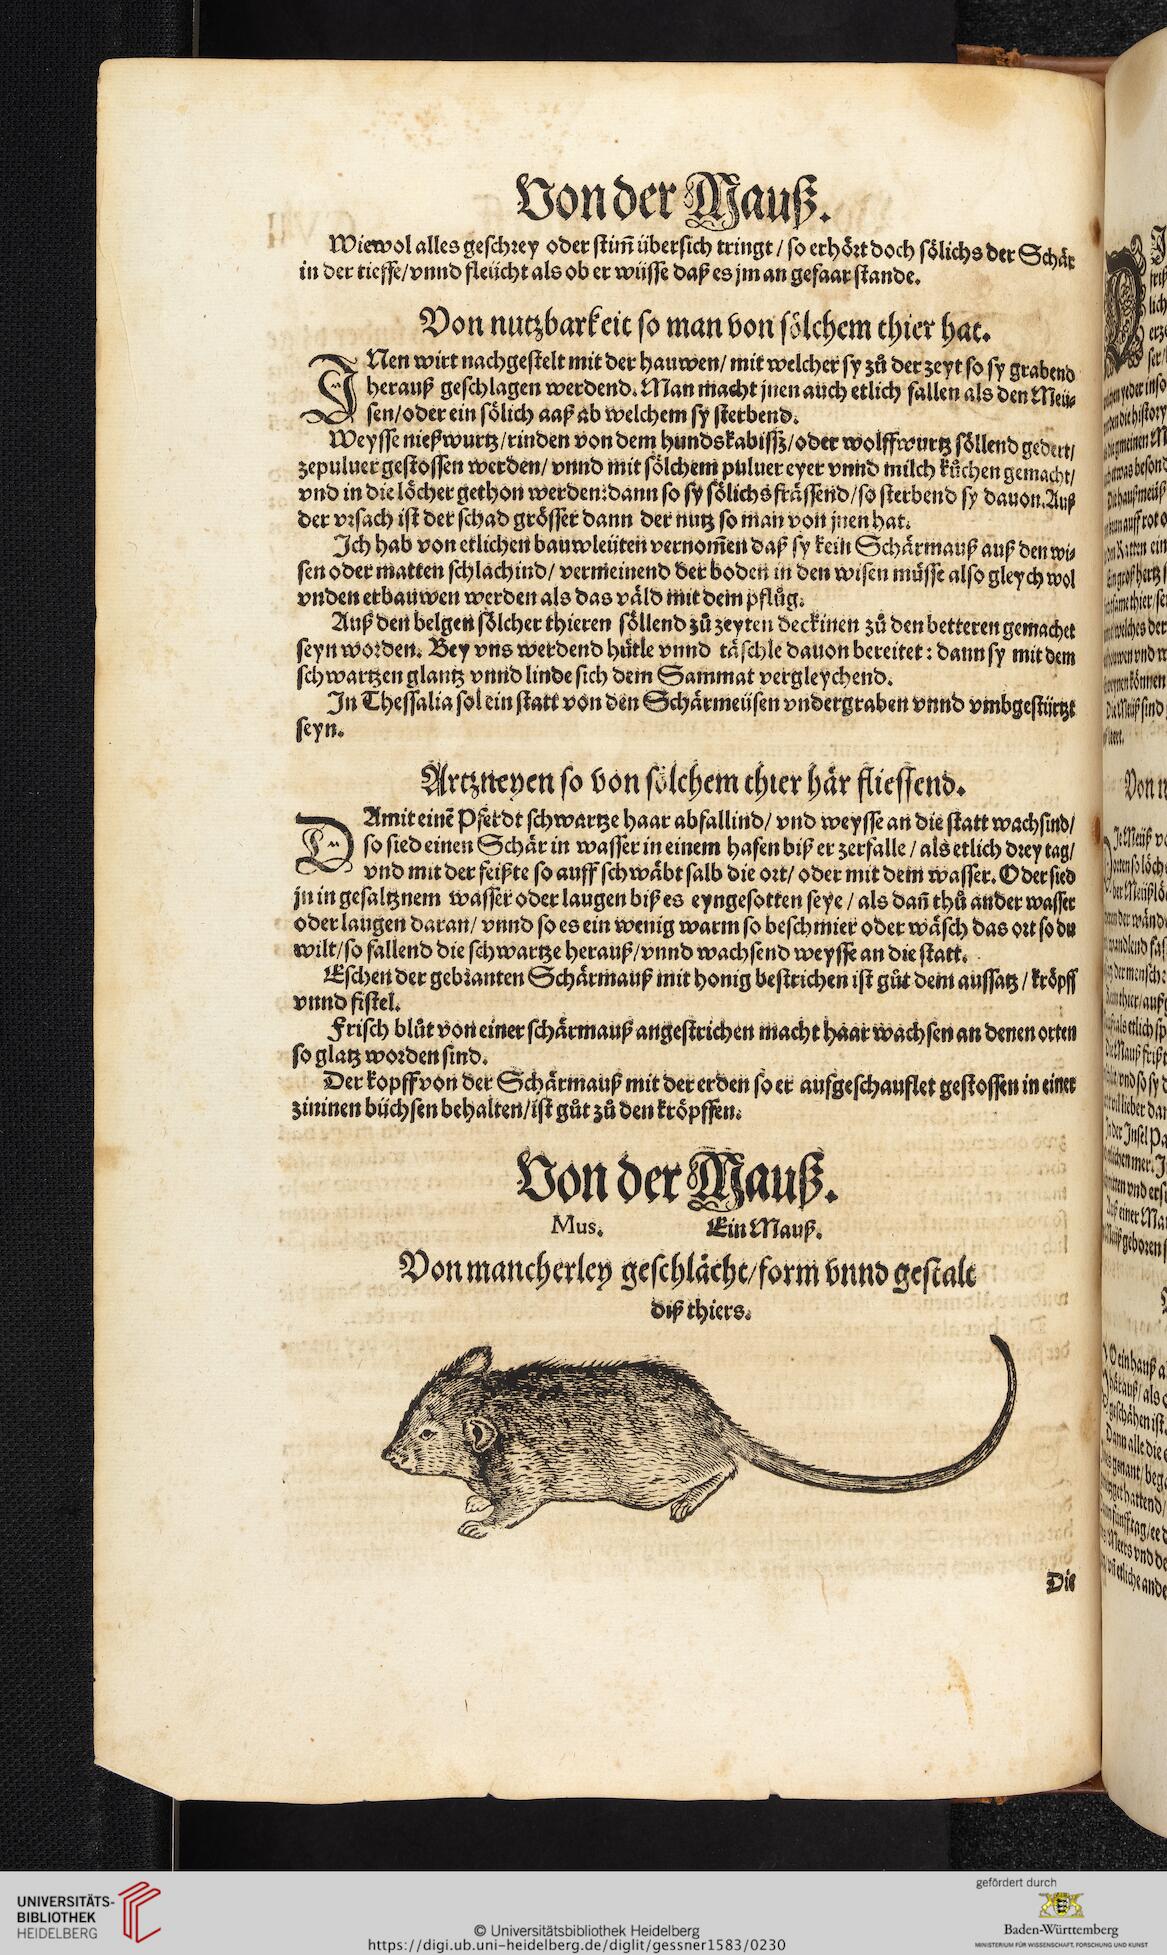 Von der Mauß.
Wiewol alles geschrey oder stim̃ übersich tringt / so erhört doch sölichs der Schär
in der tieffe/vnnd fleücht als ob er wüsse daß es jm an gefaar stande.
Von nutzbarkeit so man von sölchem thier hat.
INen wirt nachgestelt mit der hauwen/ mit welcher sy zů der zeyt so sy grabend
herauß geschlagen werdend. Man macht jnen auch etlich fallen als den Meü-
sen/oder ein sölich aaß ab welchem sy sterbend.
Weysse nießwurtz/rinden von dem hundskabißz/oder wolffwurtz söllend gederrt/
zepuluer gestossen werden/ vnnd mit sölchem puluer eyer vnnd milch kůchen gemacht/
vnd in die löcher gethon werden: dann so sy sölichs frässend/so sterbend sy dauon. Auß
der vrsach ist der schad grösser dann der nutz so man von jnen hat.
Ich hab von etlichen bauwleüten vernom̃en daß sy kein Schärmauß auß den wi-
sen oder matten schlachind/ vermeinend der boden in den wisen müsse also gleych wol
vnden erbauwen werden als das väld mit dem pflůg.
Auß den belgen sölcher thieren söllend zů zeyten deckinen zů den betteren gemachet
seyn worden. Bey vns werdend hütle vnnd täschle dauon bereitet : dann sy mit dem
schwartzen glantz vnnd linde sich dem Sammat vergleychend.
In Thessalia sol ein statt von den Schärmeüsen vndergraben vnnd vmbgestürtzt
seyn.
Artzneyen so von sölchem thier här fliessend.
DAmit einẽ Pferdt schwartze haar abfallind/ vnd weysse an die statt wachsind/
so sied einen Schär in wasser in einem hafen biß er zerfalle / als etlich drey tag/
vnd mit der feißte so auff schwäbt salb die ort/ oder mit dem wasser. Oder sied
jn in gesaltznem wasser oder laugen biß es eyngesotten seye / als dañ thů ander wasser
oder laugen daran/ vnnd so es ein wenig warm so beschmier oder wäsch das ort so du
wilt/so fallend die schwartze herauß/vnnd wachsend weysse an die statt.
Eschen der gebranten Schärmauß mit honig bestrichen ist gůt dem aussatz / kröpff
vnnd fistel.
Frisch blůt von einer schärmauß angestrichen macht haar wachsen an denen orten
so glatz worden sind.
Der kopff von der Schärmauß mit der erden so er aufgeschauflet gestossen in einer
zininen büchsen behalten/ist gůt zů den kröpffen.
Von der Mauß.
Mus. Ein Mauß.
Von mancherley geschlächt/form vnnd gestalt
diß thiers.
Die
UNIVERSITÄTS-
BIBLIOTHEK
HEIDELBERG
© Universitätsbibliothek Heidelberg
https://digi.ub.uni-heidelberg.de/diglit/gessner1583/0230
gefördert durch
Baden-Württemberg
MINISTERIUM FÜR WISSENSCHAFT, FORSCHUNG UND KUNST